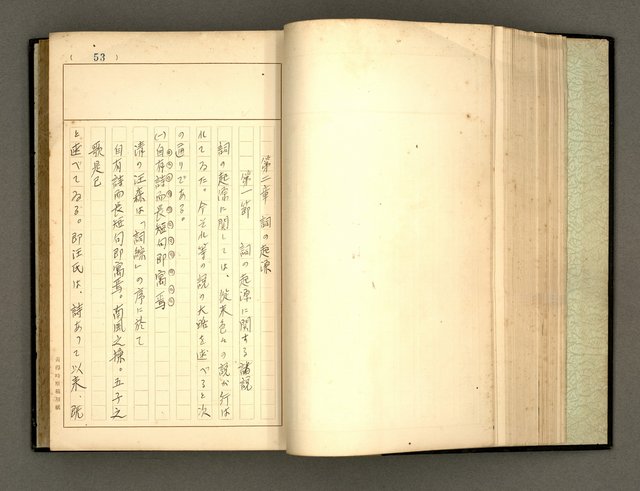 ( 53 )
第二章 詞の起源
第一節 詞の起源に関する諸説
詞の起源に関しては、従来色々の説が行は
れてゐた。今それ等の説の大略を述べると次
の通りである。
(一)自有詩而長短句即寓焉
清の汪森は「詞綜」の序に於て
自有詩而長短句即寓焉。南風之操。五子之
歌是已
と述べてゐる。即汪氏は、詩あつて以来、既